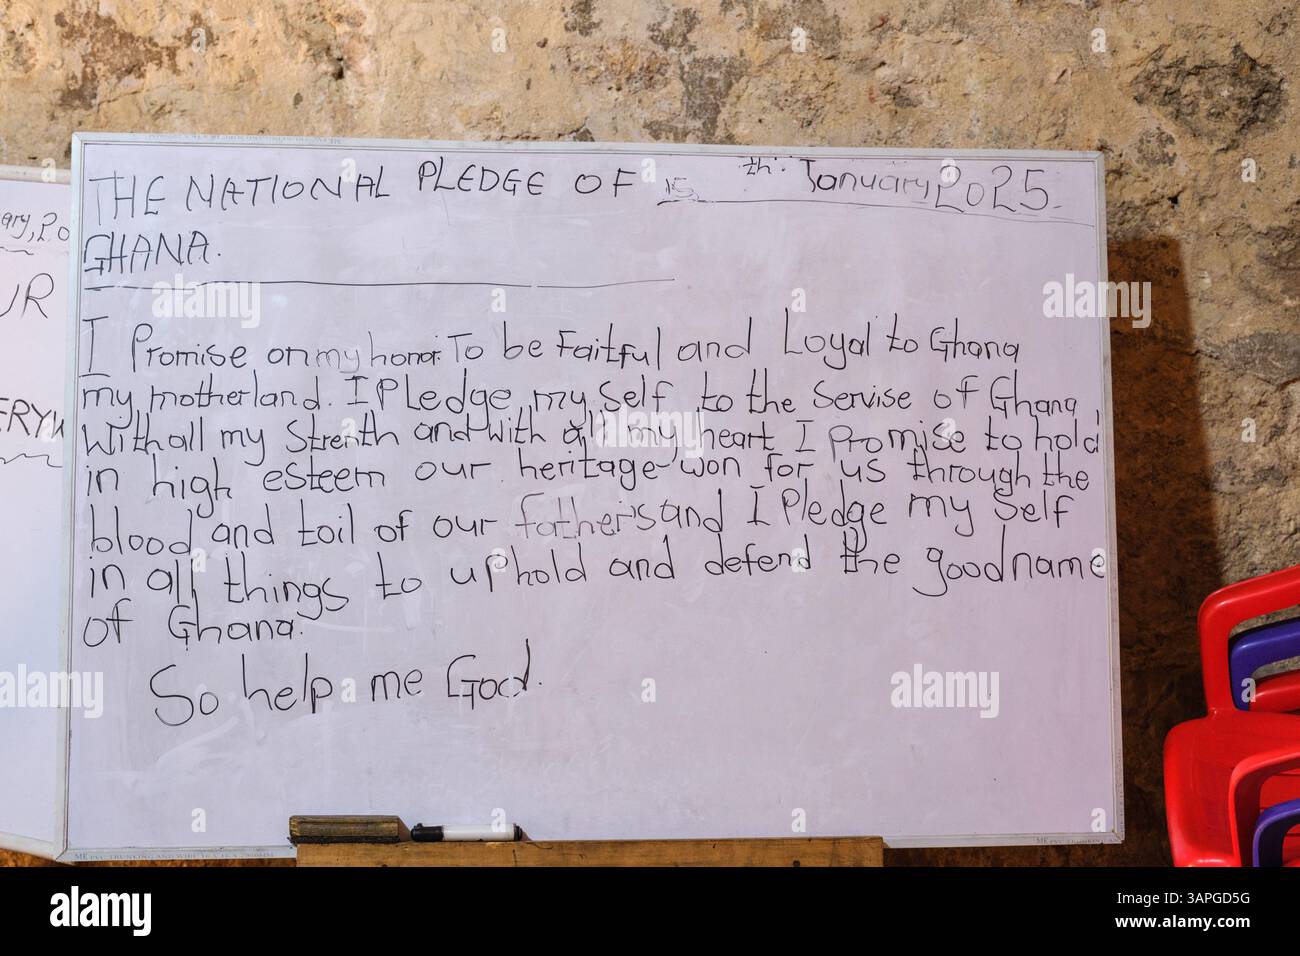 THE NATIONAL PLEDGE OF 15th: January, 2025.
GHANA.
I Promise on my honor. To be Faitful and Loyal to Ghana
my motherland. I Pledge my self to the servise of Ghana,
with all my strenth and with all my heart I promise to hold
in high esteem our heritage won for us through the
blood and toil of our father's and I Pledge my self
in all things to uphold and defend the good name
of Ghana.
So help me God.
ary, 20
UR
ERYW
alamy
Image ID: 3APGD5G
www.alamy.com